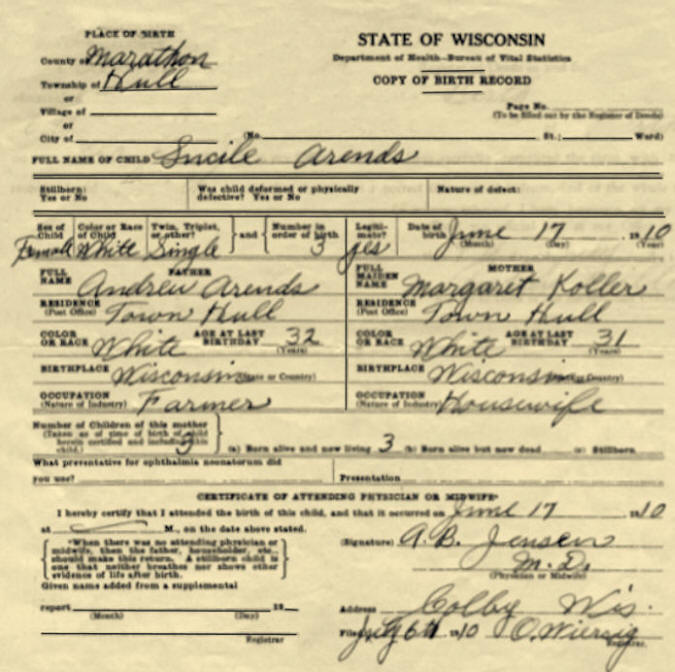 PLACE OF BIRTH
County of Marathon
Township of Hull
or
Village of
or
City of
STATE OF WISCONSIN
Department of Health—Bureau of Vital Statistics
COPY OF BIRTH RECORD
Page No.
(To be filled out by the Register of Deeds)
(No. St.; Ward)
FULL NAME OF CHILD Lucile Arends
Stillborn: Yes or No
Was child deformed or physically defective? Yes or No
Nature of defect:
Sex of Child Female
Color or Race of Child White
Twin, Triplet, or other? Single
and
Number in order of birth 3
Legitimate? yes
Date of birth June 17 1910
(Month) (Day) (Year)
FATHER
FULL NAME Andrew Arends
RESIDENCE (Post Office) Town Hull
COLOR OR RACE White AGE AT LAST BIRTHDAY 32 (Years)
BIRTHPLACE Wisconsin (State or Country)
OCCUPATION (Nature of Industry) Farmer
MOTHER
FULL MAIDEN NAME Margaret Koller
RESIDENCE (Post Office) Town Hull
COLOR OR RACE White AGE AT LAST BIRTHDAY 31 (Years)
BIRTHPLACE Wisconsin (State or Country)
OCCUPATION (Nature of Industry) Housewife
Number of Children of this mother
(Taken as of time of birth of child
herein certified and including this
child.) 3 (a) Born alive and now living 3 (b) Born alive but now dead (c) Stillborn
What preventative for ophthalmia neonatorum did
you use? Presentation
CERTIFICATE OF ATTENDING PHYSICIAN OR MIDWIFE*
I hereby certify that I attended the birth of this child, and that it occurred on June 17 1910
at M., on the date above stated.
*When there was no attending physician or
midwife, then the father, householder, etc.,
should make this return. A stillborn child is
one that neither breathes nor shows other
evidence of life after birth.
Given name added from a supplemental
report 19
(Month) (Day)
Registrar
(Signature) A. B. Jensen
M. D.
(Physician or Midwife)
Address Colby Wis.
Filed July 6th 1910 O. Wiersig
Registrar.